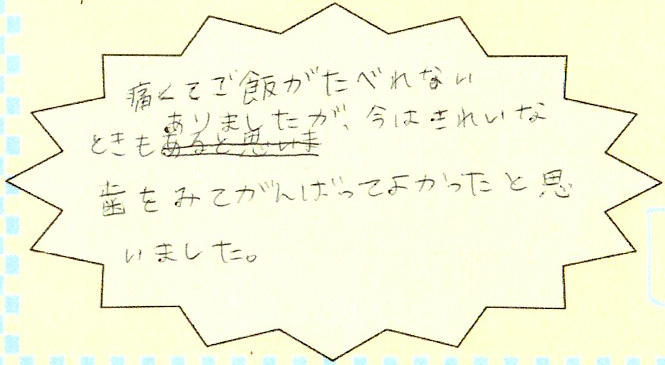 痛くてご飯がたべれない
ときもありましたが、今はきれいな
歯をみてがんばってよかったと思
いました。